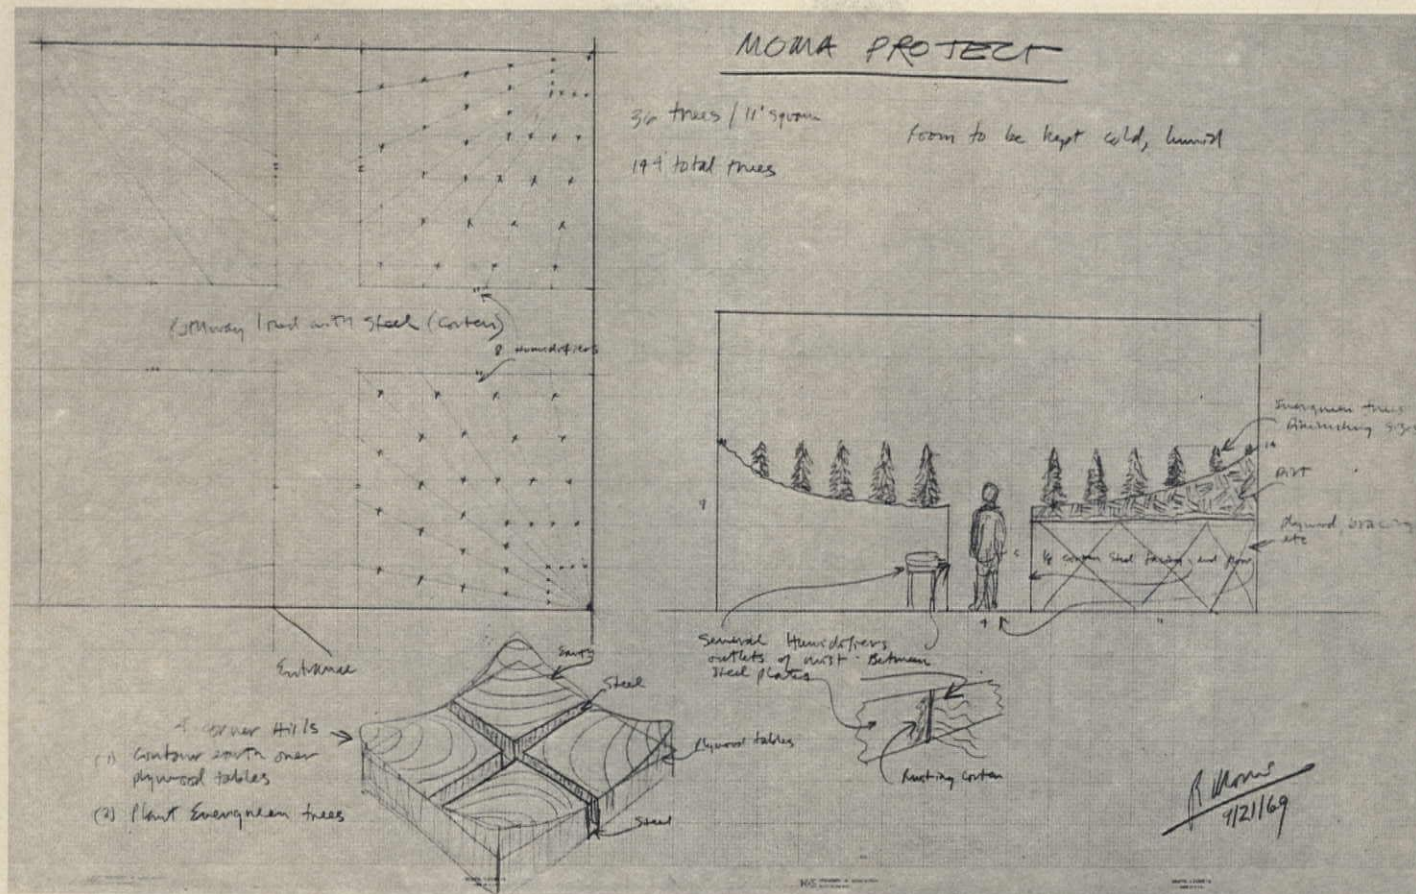 MOMA PROJECT
36 trees / 11' square
144 total trees
Room to be kept cold, humid
lined with Steel (Corten)
8 Humidifiers
Evergreen trees
diminishing sizes
Dirt
Plywood, bracing
etc
1/8 corten steel facing and floor
Several Humidifiers
outlets of mist - Between
Steel plates
Rusting Corten
Entrance
Earth
Steel
4 corner Hills
(1) Contour earth over
plywood tables
(2) Plant Evergreen trees
Plywood tables
Steel
R Morris
9/21/69